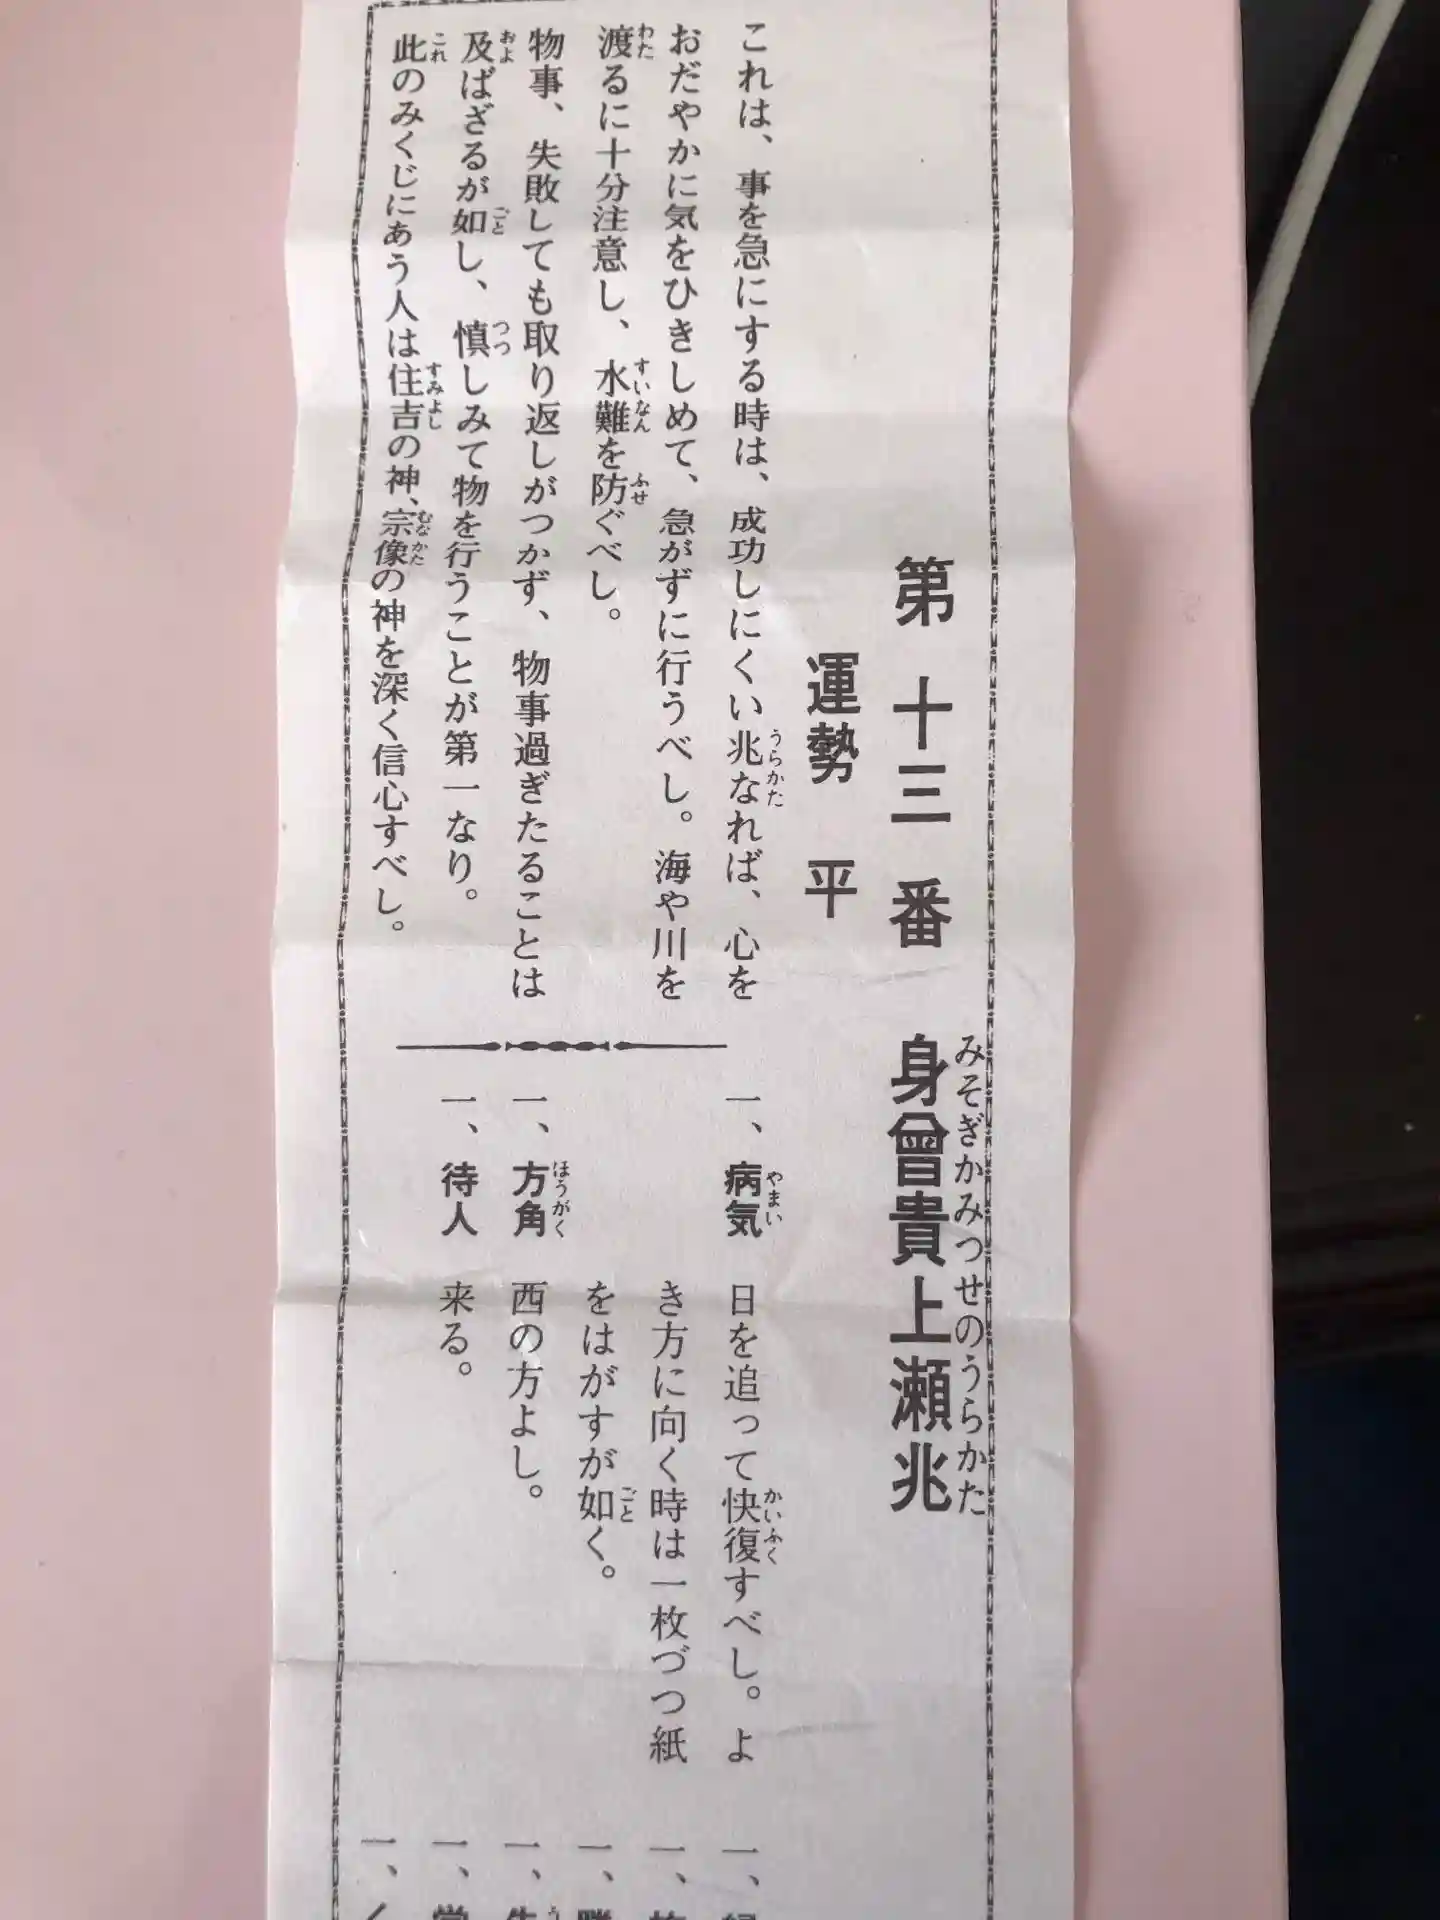 第十三番 身曾貴上瀬兆
みそぎかみつせのうらかた
運勢 平
これは、事を急にする時は、成功しにくい兆なれば、心を
うらかた
おだやかに気をひきしめて、急がずに行うべし。海や川を
渡るに十分注意し、水難を防ぐべし。
わた すいなん ふせ
物事、失敗しても取り返しがつかず、物事過ぎたることは
及ばざるが如し、慎しみて物を行うことが第一なり。
およ ごと つつ
此のみくじにあう人は住吉の神、宗像の神を深く信心すべし。
これ すみよし むなかた
一、病気 日を追って快復すべし。よ
やまい かいふく
き方に向く時は一枚づつ紙
をはがすが如く。
ごと
一、方角 西の方よし。
ほうがく
一、待人 来る。
一、
一、
一、
一、
一、
一、